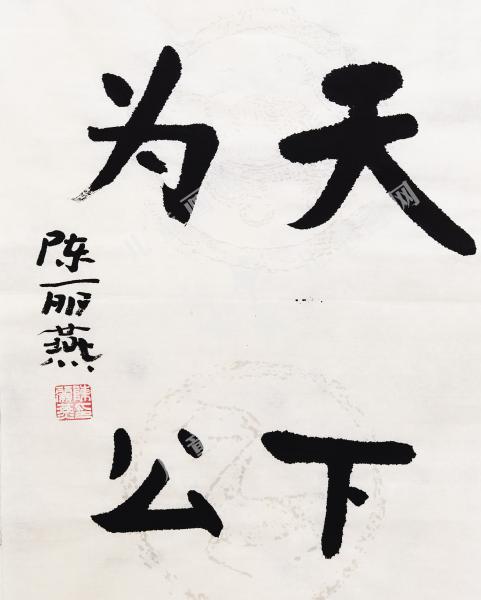 天下
为公
陈丽燕